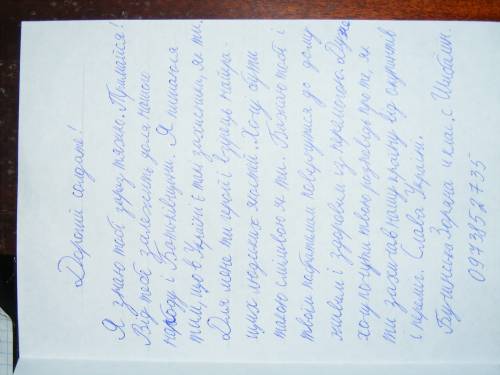 Дорогий солдате!
Я знаю тобі зараз тяжко. Тримайся!
Від тебе залежить доля нашого
народу і Батьківщини. Я пишаюся
тим, що в Україні є такі захисники, як ти.
Для мене ти герой і взірець найкра-
щих людських якостей. Хочу бути
такою сміливою як ти. Бажаю тобі і
твоїм побратимам повернутися до дому
живим і здоровим із перемогою. Дуже
хочу почути твою розповідь про те, як
ти захищав нашу країну від окупантів
і переміг. Слава Україні.
Зоряна с. Шибалин.
0973852735